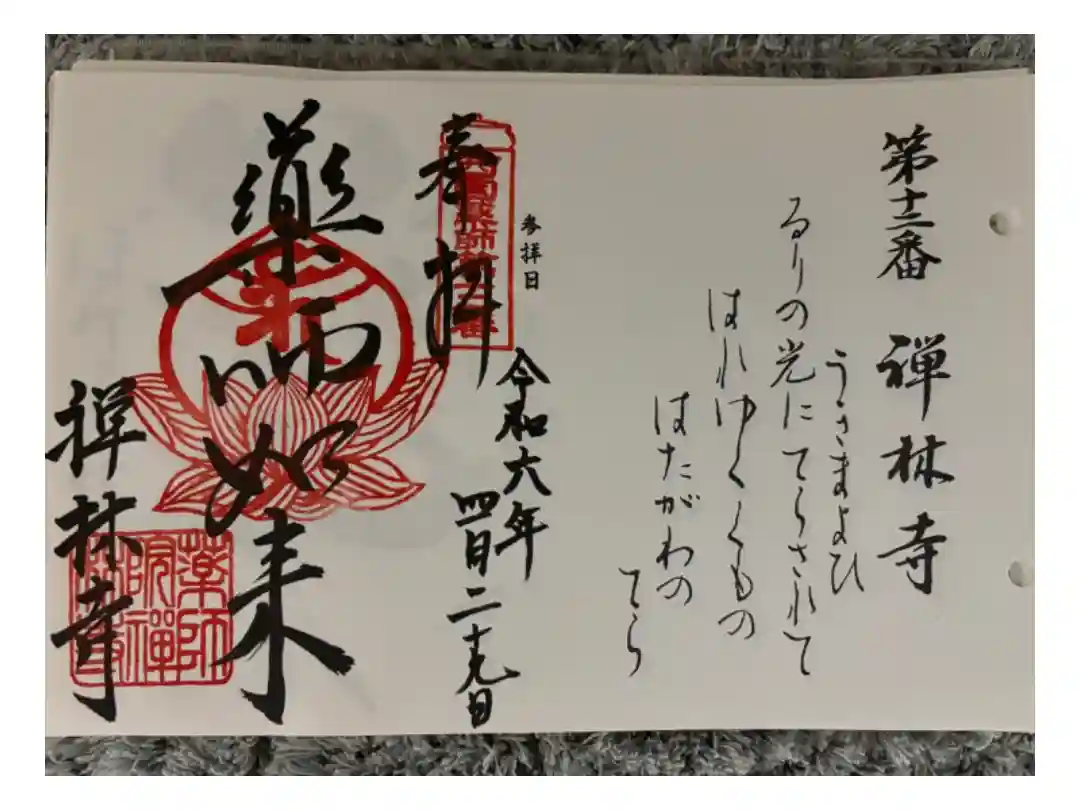 第十二番　禅林寺
うきまよひ
るりの光にてらされて
はれゆくくもの
はたがわの
てら
参拝日
奉拝
令和六年
四月二十九日
薬師如来
禅林寺